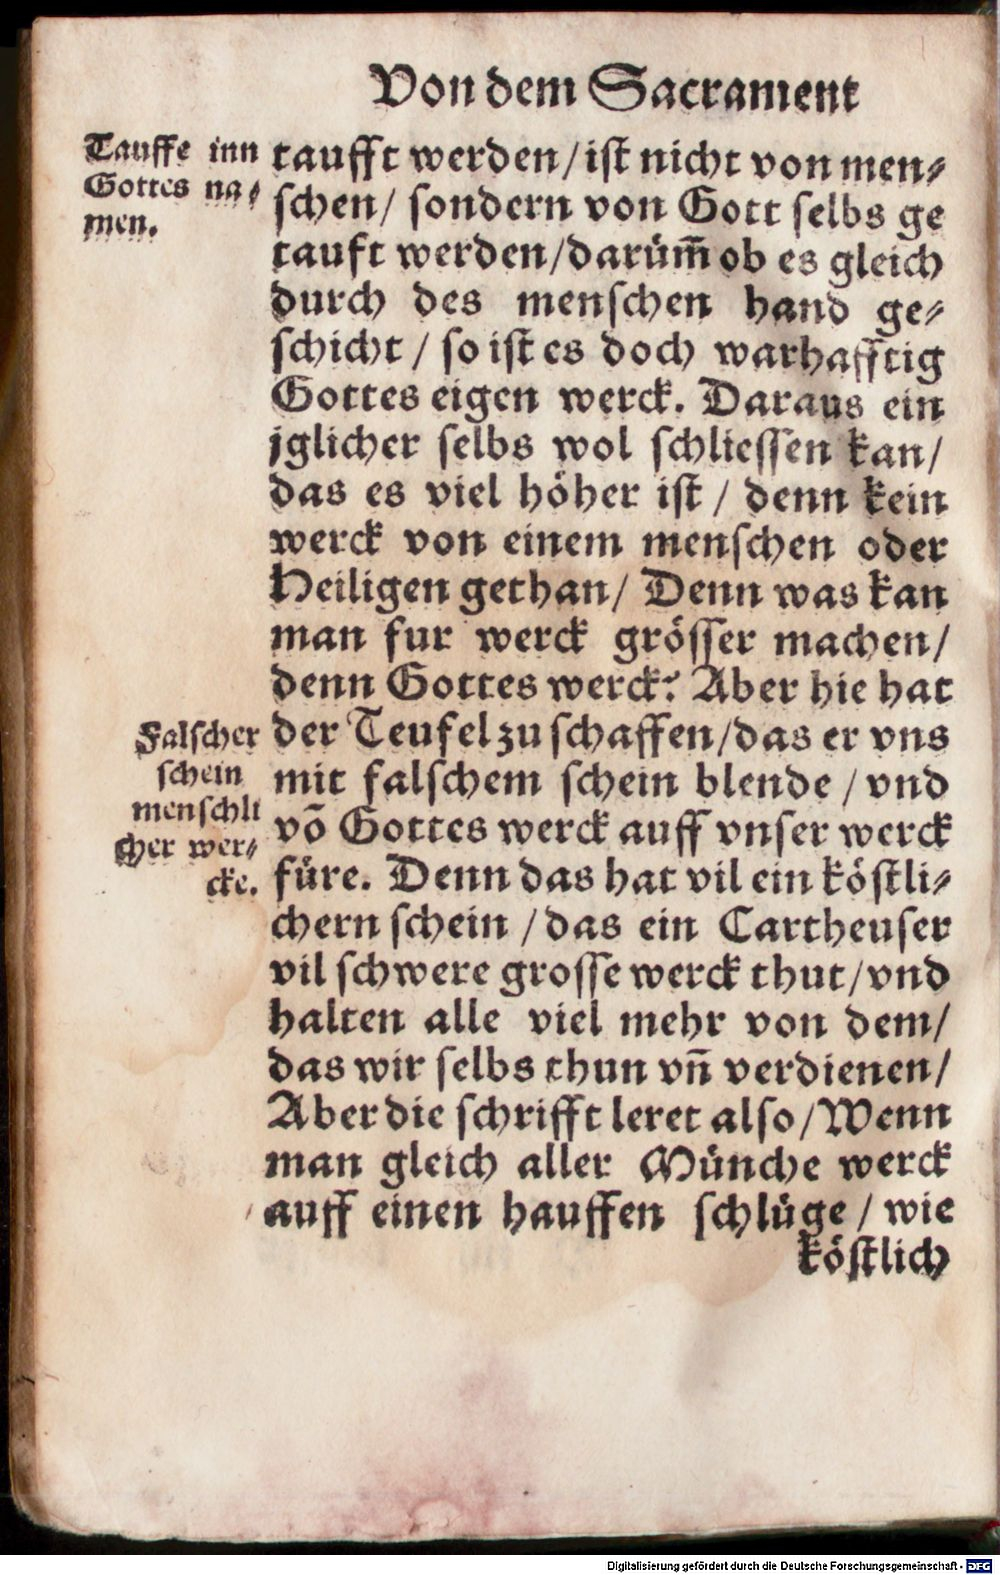 Von dem Sacrament
Tauffe inn
Gottes na⸗
men.
taufft werden/ist nicht von men⸗
schen/ sondern von Gott selbs ge
tauft werden/darüm̄ ob es gleich
durch des menschen hand ge⸗
schicht / so ist es doch warhafftig
Gottes eigen werck. Daraus ein
jglicher selbs wol schliessen kan/
das es viel höher ist / denn kein
werck von einem menschen oder
Heiligen gethan/ Denn was kan
man fur werck grösser machen/
denn Gottes werck? Aber hie hat
Falscher
schein
menschli
cher wer⸗
cke.
der Teufel zu schaffen/das er vns
mit falschem schein blende / vnd
võ Gottes werck auff vnser werck
füre. Denn das hat vil ein köstli⸗
chern schein / das ein Cartheuser
vil schwere grosse werck thut/vnd
halten alle viel mehr von dem/
das wir selbs thun vn̄ verdienen/
Aber die schrifft leret also/Wenn
man gleich aller Münche werck
auff einen hauffen schlüge / wie
köstlich
Digitalisierung gefördert durch die Deutsche Forschungsgemeinschaft - DFG